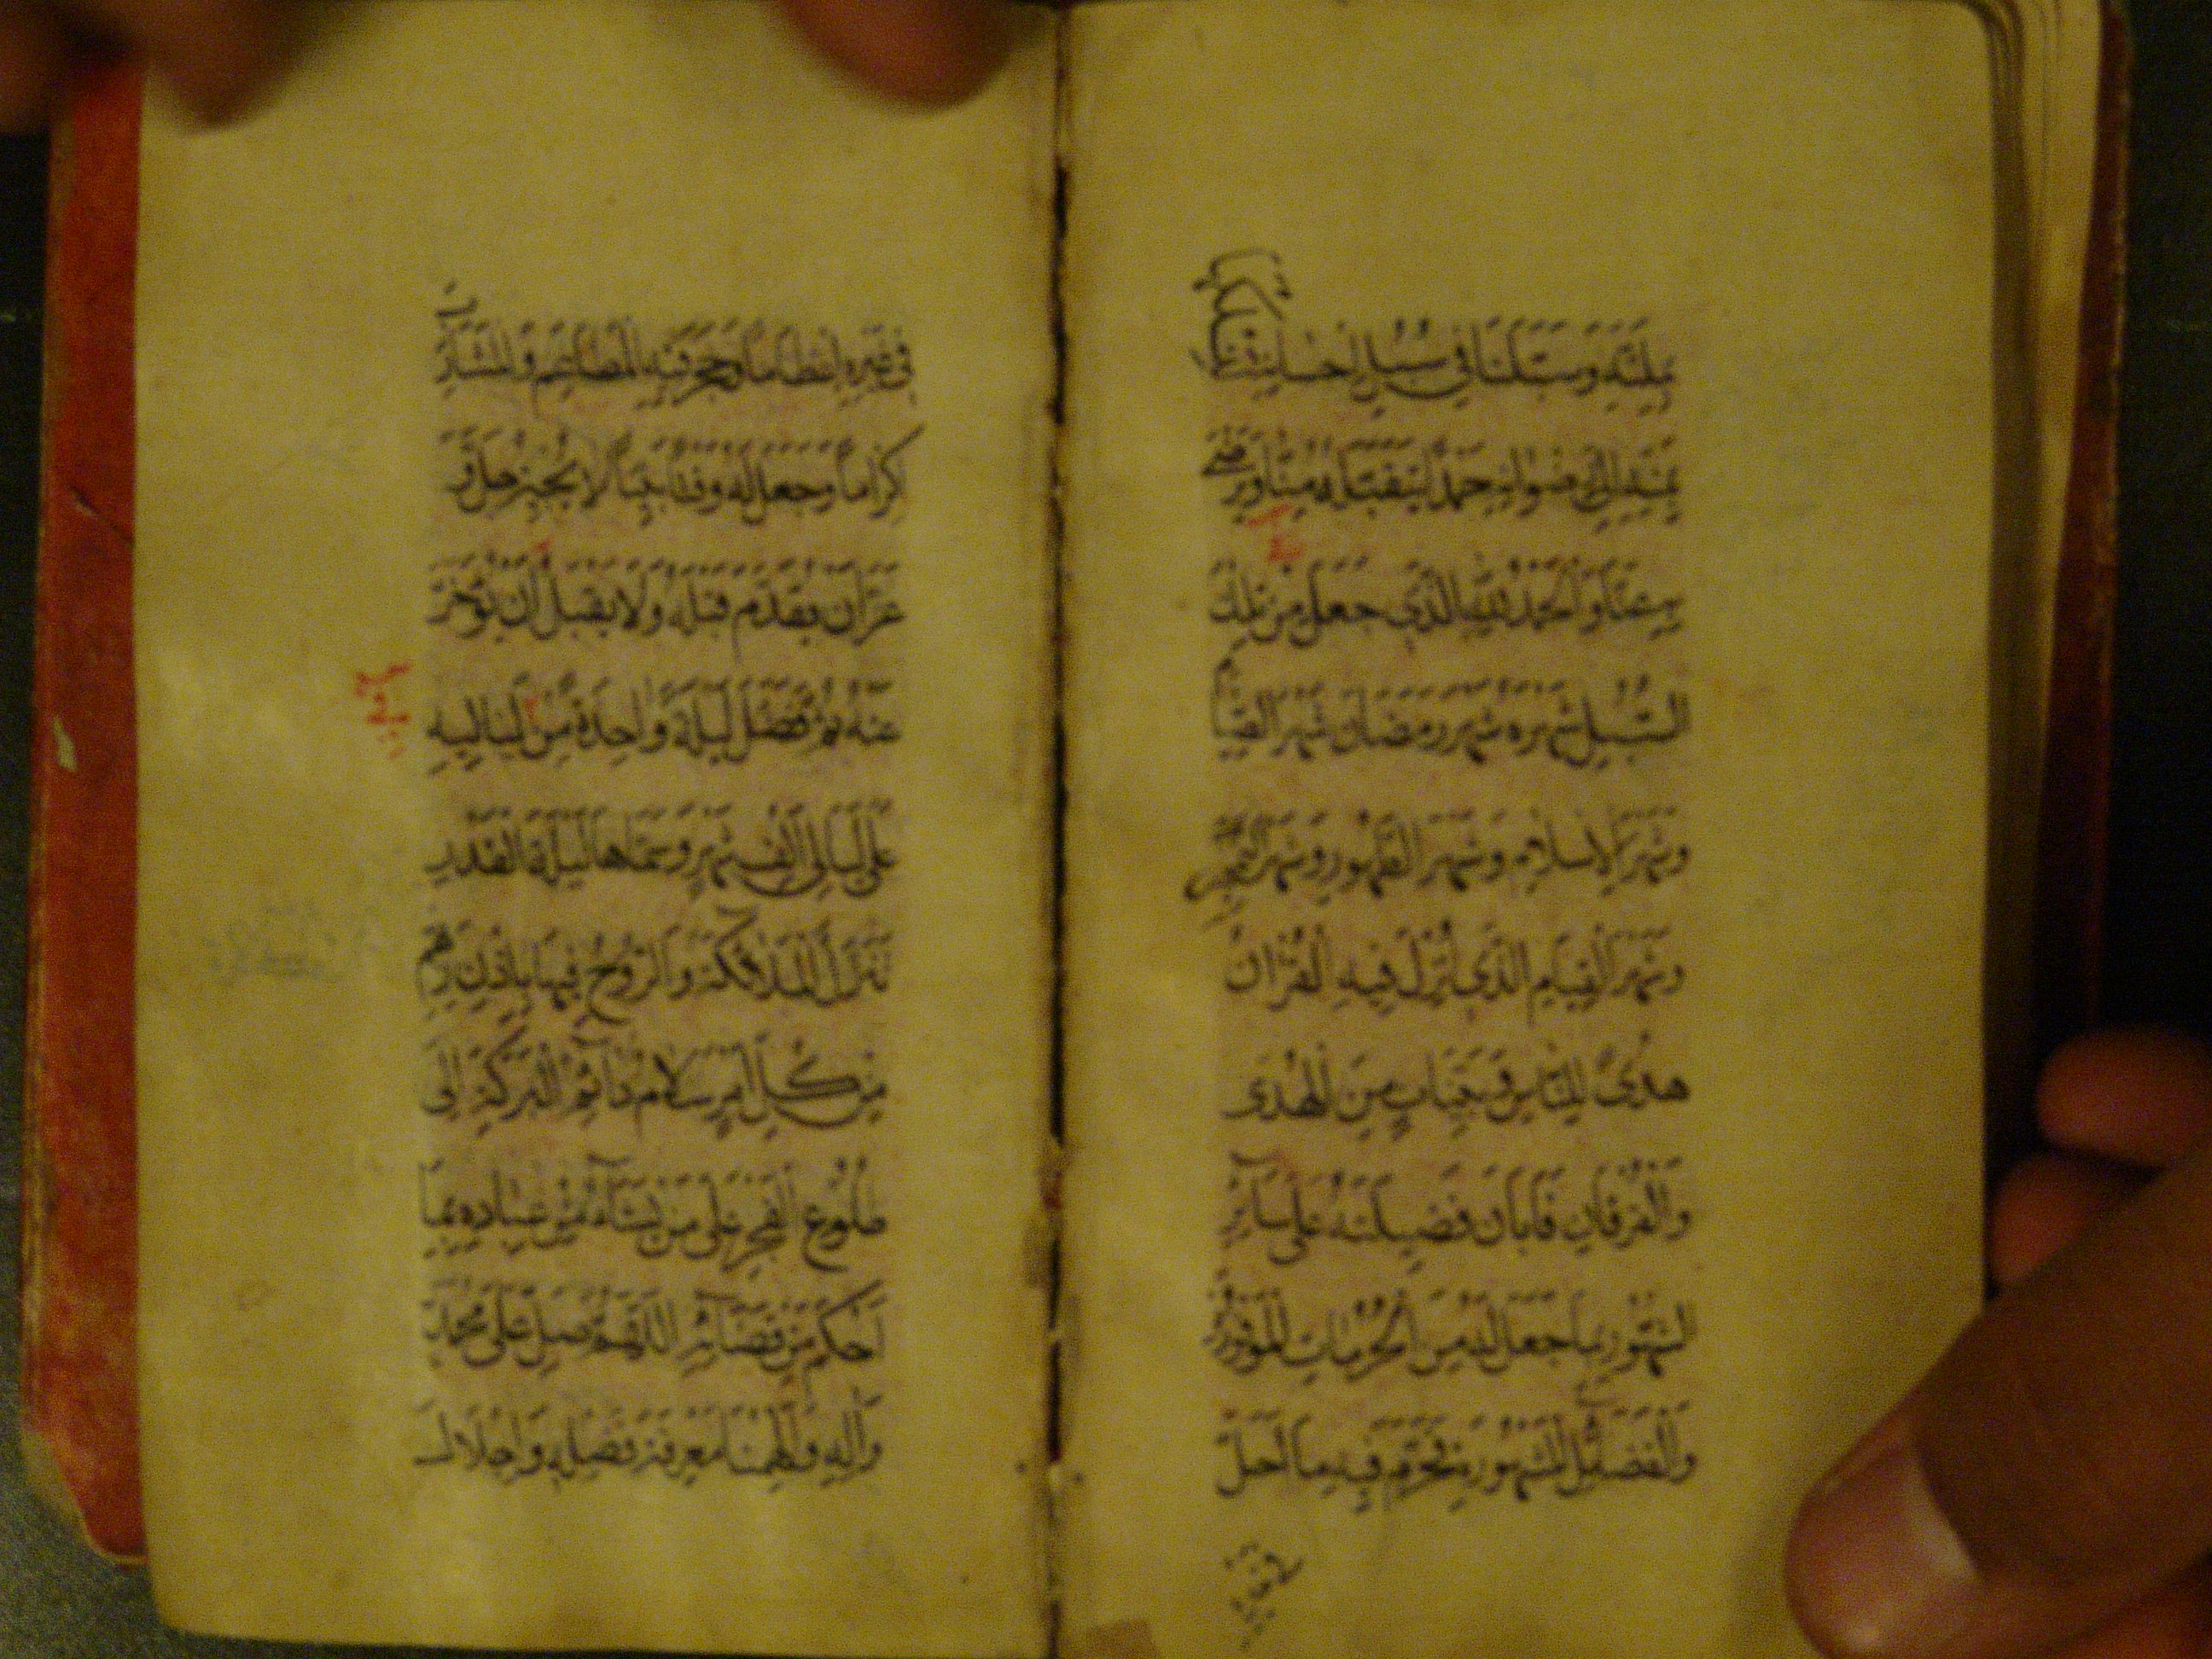 بملته وسبلنا في سبل احسانه لنسلكها
بمنه الى رضوانه حمدا يتقبله منا ويرضى
به عنا والحمد لله الذي جعل من تلك
السبل شهره شهر رمضان شهر الصيام
وشهر الاسلام وشهر الطهور وشهر التمحيص
وشهر القيام الذي انزل فيه القران
هدى للناس وبينات من الهدى
والفرقان فابان فضيلته على سائر
الشهور بما جعل له من الحرمات الموفورة
والفضائل المشهورة فحرم فيه ما احل
في غيره اعظاما وحجر فيه المطاعم والمشارب
اكراما وجعل له وقتا بينا لا يجيز جل و
عز ان يقدم قبله ولا يقبل ان يؤخر
عنه ثم فضل ليلة واحدة من لياليه
على ليالي الف شهر وسماها ليلة القدر
تنزل الملائكة والروح فيها باذن ربهم
من كل امر سلام دائم البركة الى
طلوع الفجر على من يشاء من عباده بما
احكم من قضائه اللهم صل على محمد
واله والهمنا معرفة فضله واجلال